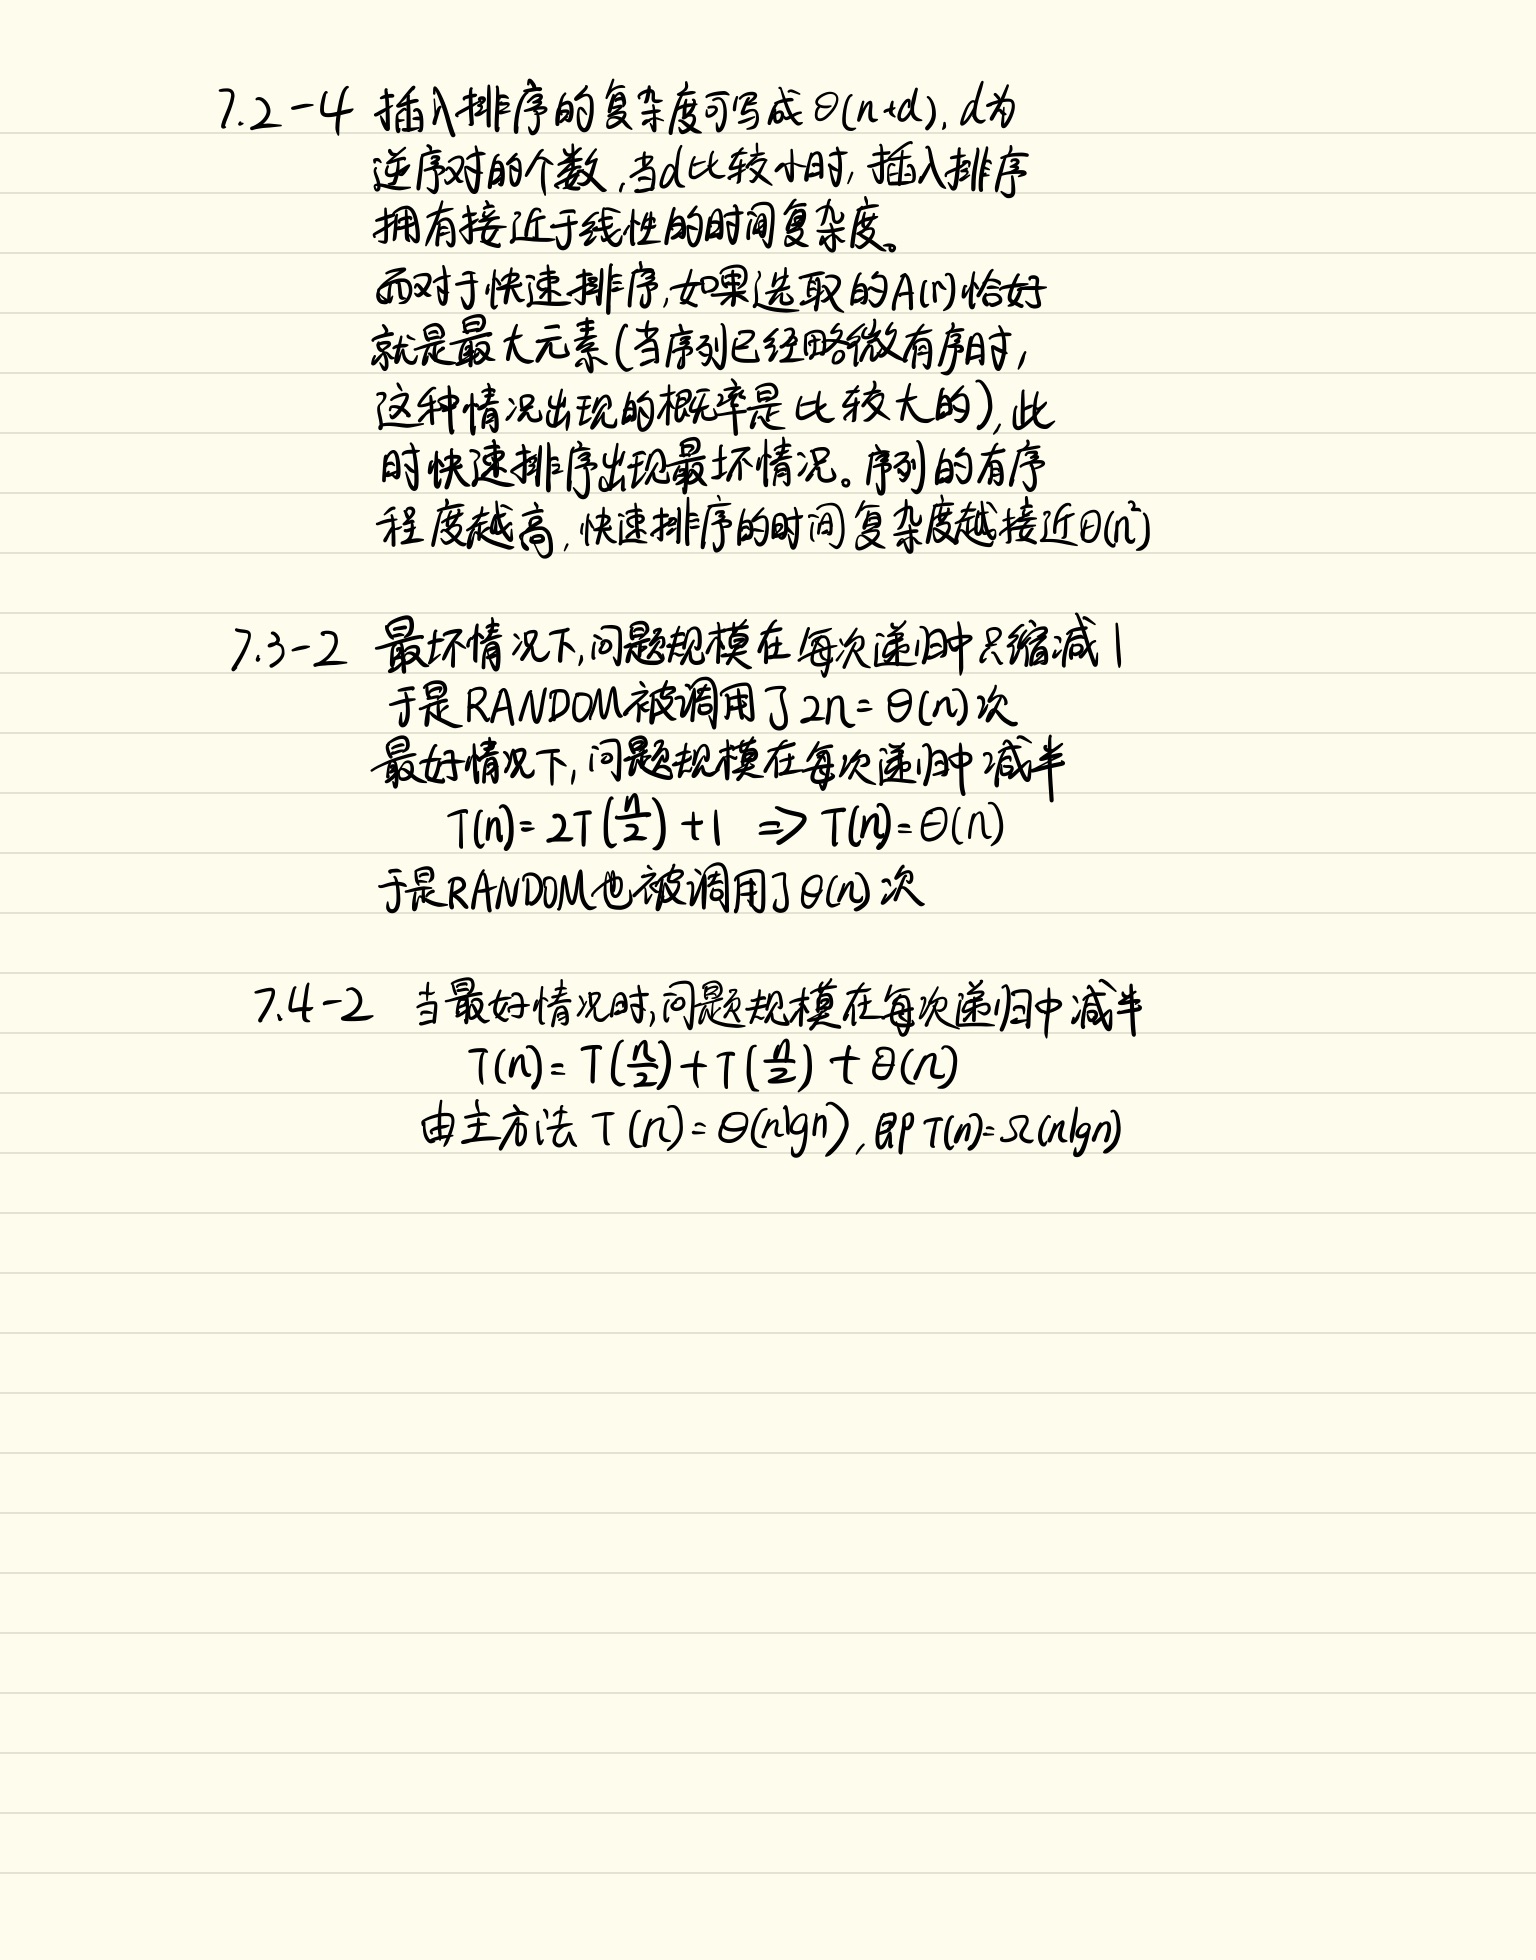 7.2-4 插入排序的复杂度可写成 Θ(n+d), d为
逆序对的个数,当d比较小时,插入排序
拥有接近于线性的时间复杂度。
而对于快速排序,如果选取的A(r)恰好
就是最大元素(当序列已经略微有序时,
这种情况出现的概率是比较大的),此
时快速排序出现最坏情况。序列的有序
程度越高,快速排序的时间复杂度越接近Θ(n²)
7.3-2 最坏情况下,问题规模在每次递归中只缩减1
于是RANDOM被调用了2n=Θ(n)次
最好情况下,问题规模在每次递归中减半
T(n)=2T(n/2)+1 => T(n)=Θ(n)
于是RANDOM也被调用了Θ(n)次
7.4-2 当最好情况时,问题规模在每次递归中减半
T(n)=T(n/2)+T(n/2)+Θ(n)
由主方法 T(n)=Θ(nlgn),即T(n)=Ω(nlgn)